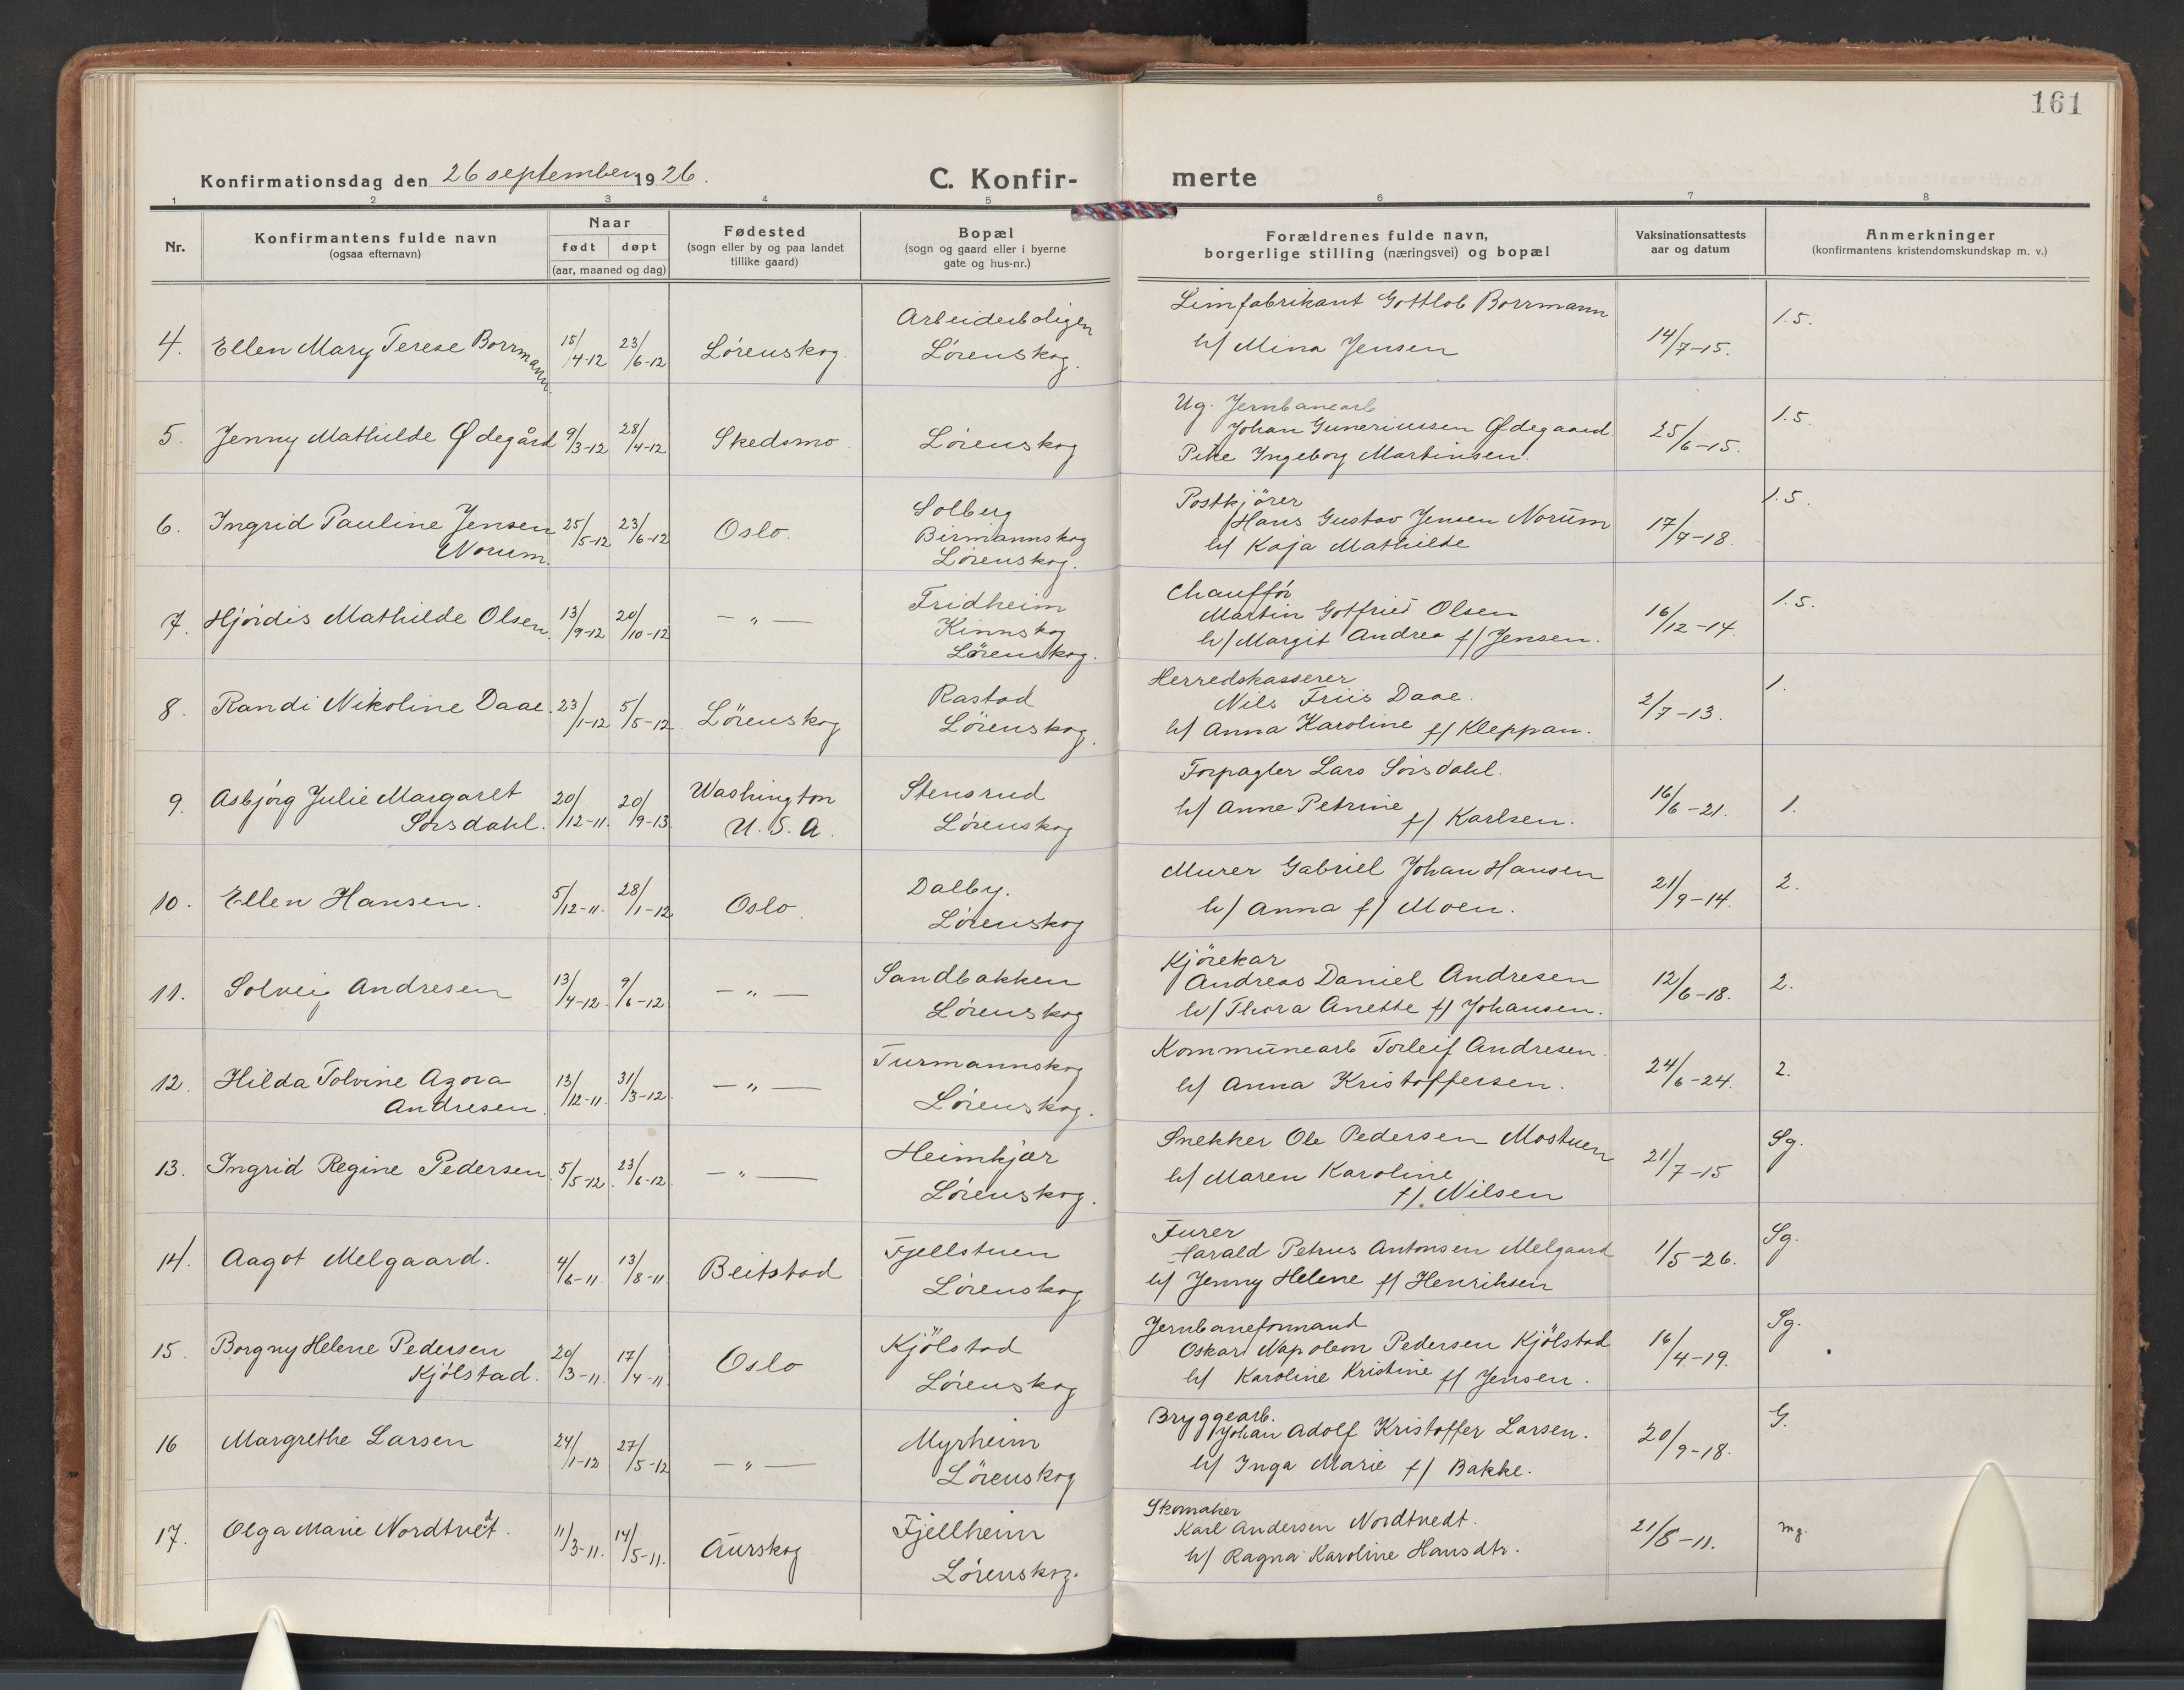 161
Konfirmationsdag den 26 september 1926.
C. Konfir-merte
1 2 3 4 5 6 7 8
Nr.
Konfirmantens fulde navn
(ogsaa efternavn)
Naar
født døpt
(aar, maaned og dag)
Fødested
(sogn eller by og paa landet
tillike gaard)
Bopæl
(sogn og gaard eller i byerne
gate og hus-nr.)
Forældrenes fulde navn,
borgerlige stilling (næringsvei) og bopæl
Vaksinationsattests
aar og datum
Anmerkninger
(konfirmantens kristendomskundskap m. v.)
4. Ellen Mary Terese Borrmann. 15/4-12 23/6-12 Lørenskog.
Arbeiderboligen
Lørenskog.
Limfabrikant Gottlob Borrmann
h/ Mina Jensen
14/7-15. 1.5.
5. Jenny Mathilde Ødegård 9/3-12 28/4-12 Skedsmo. Lørenskog
Ug. Jernbanearb
Johan Guneriussen Ødegaard.
Pike Ingeborg Martinsen.
25/6-15. 1.5.
6. Ingrid Pauline Jensen
Norum.
25/5-12 23/6-12 Oslo.
Solberg
Birmannskog
Lørenskog.
Postkjører
Hans Gustav Jensen Norum
h/ Kaja Mathilde
17/7-18. 1.5.
7. Hjørdis Mathilde Olsen. 13/9-12 20/10-12 — " —
Fridheim
Kinnskog
Lørenskog.
Chauffør
Martin Gotfried Olsen
h/ Margit Andrea f/ Jensen.
16/12-14. 1.5.
8. Randi Nikoline Daae. 23/1-12 5/5-12 Lørenskog
Rastad
Lørenskog.
Herredskasserer
Nils Friis Daae.
h/ Anna Karoline f/ Kleppan.
2/7-13. 1.
9. Asbjørg Julie Margaret
Sørsdahl.
20/12-11. 20/9-13.
Washington
U.S.A.
Stensrud
Lørenskog
Forpagter Lars Sørsdahl.
h/ Anne Petrine
f/ Karlsen.
16/6-21. 1.
10. Ellen Hansen. 5/12-11. 28/1-12 Oslo.
Dalby.
Lørenskog
Murer Gabriel Johan Hansen
h/ Anna f/ Moen.
21/9-14. 2.
11. Solveig Andresen 13/4-12. 9/6-12 — " —
Sandbakken
Lørenskog
Kjørekar
Andreas Daniel Andresen
h/ Thora Anette f/ Johansen.
12/6-18. 2.
12. Hilda Tolvine Agora
Andresen.
13/12-11. 31/3-12. — " —
Turmannskog
Lørenskog.
Kommunearb Torleif Andresen.
h/ Anna Kristoffersen.
24/6-24. 2.
13. Ingrid Regine Pedersen. 5/5-12. 23/6-12. — " —
Heimkjær
Lørenskog.
Snekker Ole Pedersen Mostuen
h/ Maren Karoline
f/ Nilsen
21/7-15 Sg.
14. Aagot Melgaard. 4/6-11. 13/8-11 Beitstad
Fjellstuen
Lørenskog
Furer
Harald Petrus Antonsen Melgaard
h/ Jenny Helene f/ Henriksen
1/5-26. Sg.
15. Borgny Helene Pedersen
Kjølstad.
20/3-11. 17/4-11. Oslo
Kjølstad
Lørenskog
Jernbaneformand
Oskar Napoleon Pedersen Kjølstad
h/ Karoline Kristine f/ Jensen.
16/4-19. Sg.
16 Margrethe Larsen 24/1-12 27/5-12 — " —
Myrheim
Lørenskog
Bryggearb.
Johan Adolf Kristoffer Larsen.
h/ Inga Marie f/ Bakke.
20/9-18. G.
17. Olga Marie Nordtvedt. 11/3-11. 14/5-11. Aurskog
Fjellheim
Lørenskog.
Skomaker
Karl Andersen Nordtvedt.
h/ Ragna Karoline Hansdtr.
21/8-11. mg.